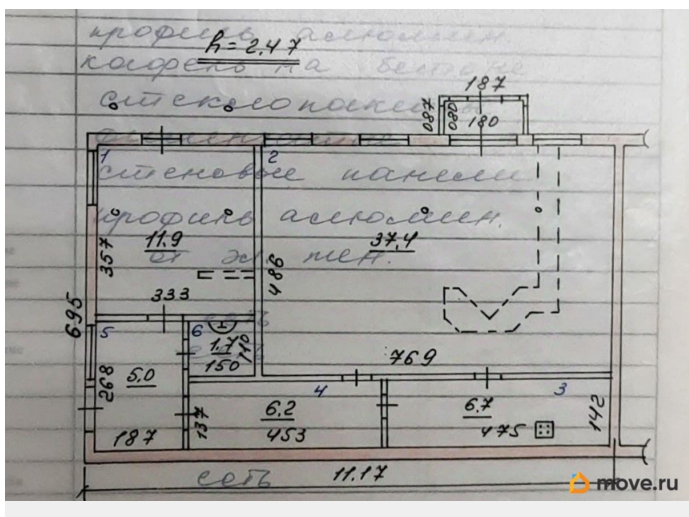 профиль алюмин.
h = 2.47
кафель на бетоне
187
стеклопакет
087
080
180
1
2
стеновые панели
профиль алюмин.
11.9
37,4
357
486
333
695
5
6
1.7
110
150
769
268
5.0
4
3
6.2
6.7
137
453
475
142
187
сеть
11.17
move.ru